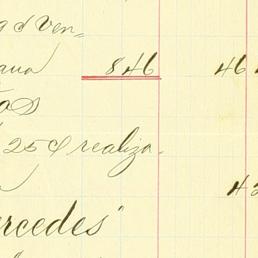 g d ven=
ana 846 46
as
25 d realiza.
42
ercedes"